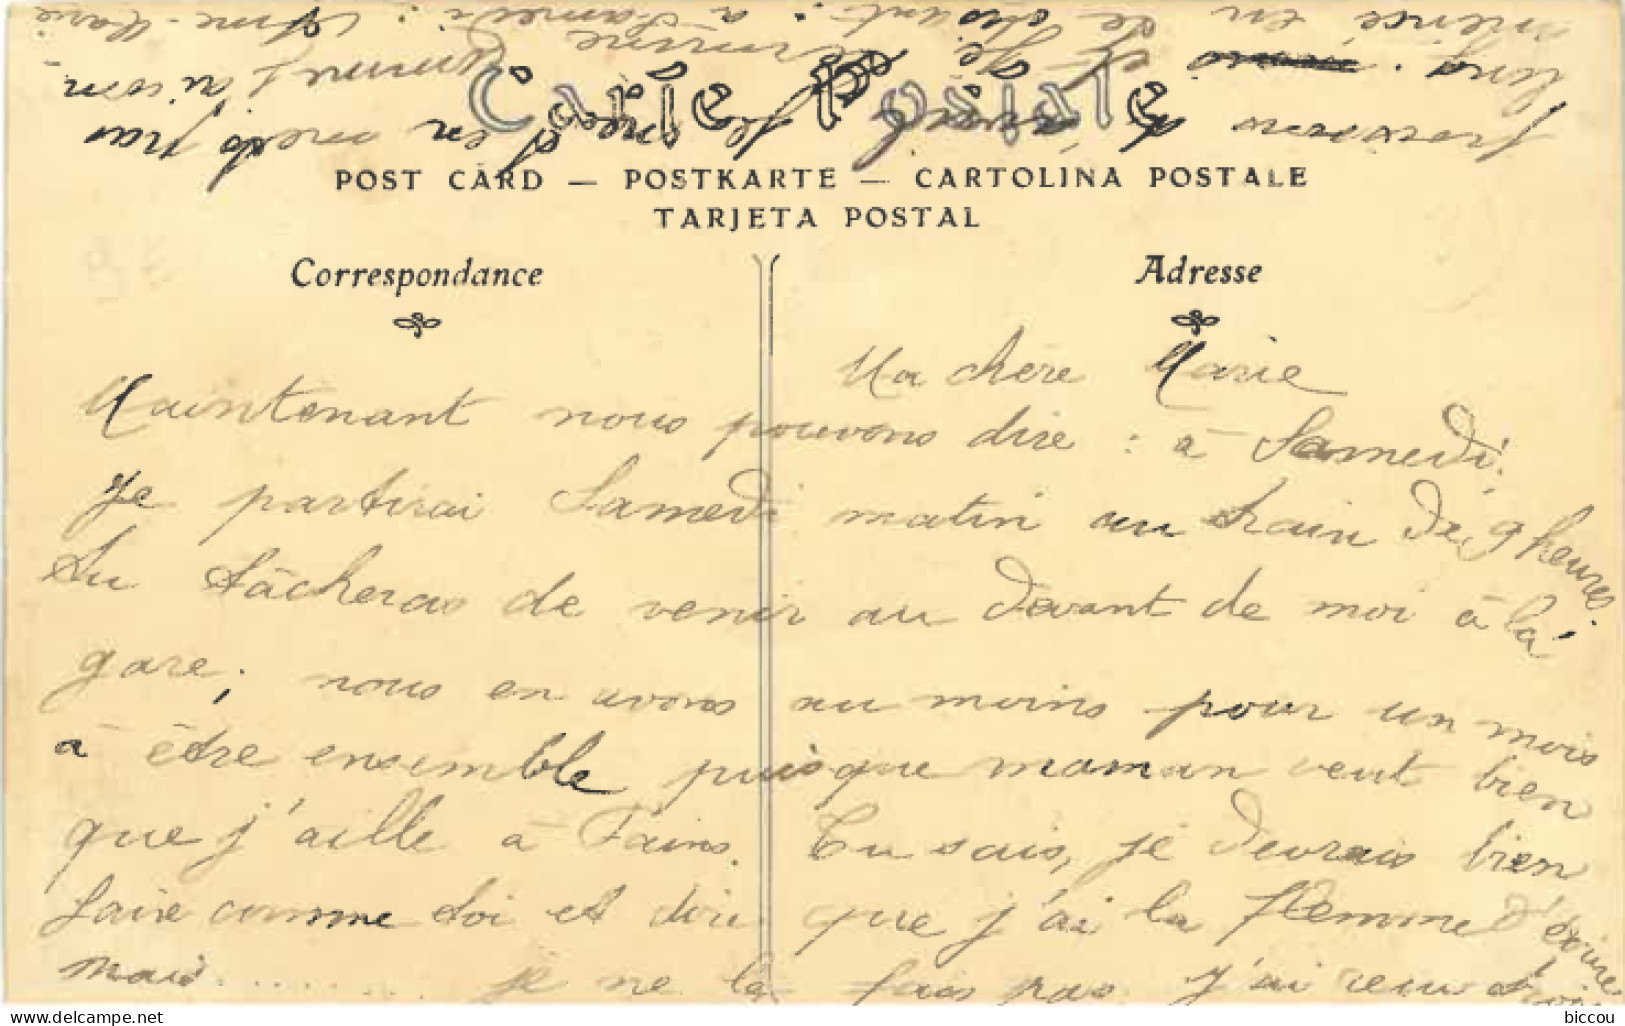 Carte Postale
POST CARD — POSTKARTE — CARTOLINA POSTALE
TARJETA POSTAL
Correspondance
Adresse
Ma chère Marie
Maintenant nous pouvons dire : à Samedi.
Je partirai Samedi matin au train de 9 heures.
tu tâcheras de venir au devant de moi à la
gare ; nous en avons au moins pour un mois
à être ensemble puisque maman veut bien
que j'aille à Fains. Tu sais, je devrais bien
faire comme toi et dire que j'ai la flemme d'écrire
mais ........ je ne la fais pas. J'ai
pas
long. et Je termine comme j'ai com-
mencé en te disant : à Samedi : Marie
biccou